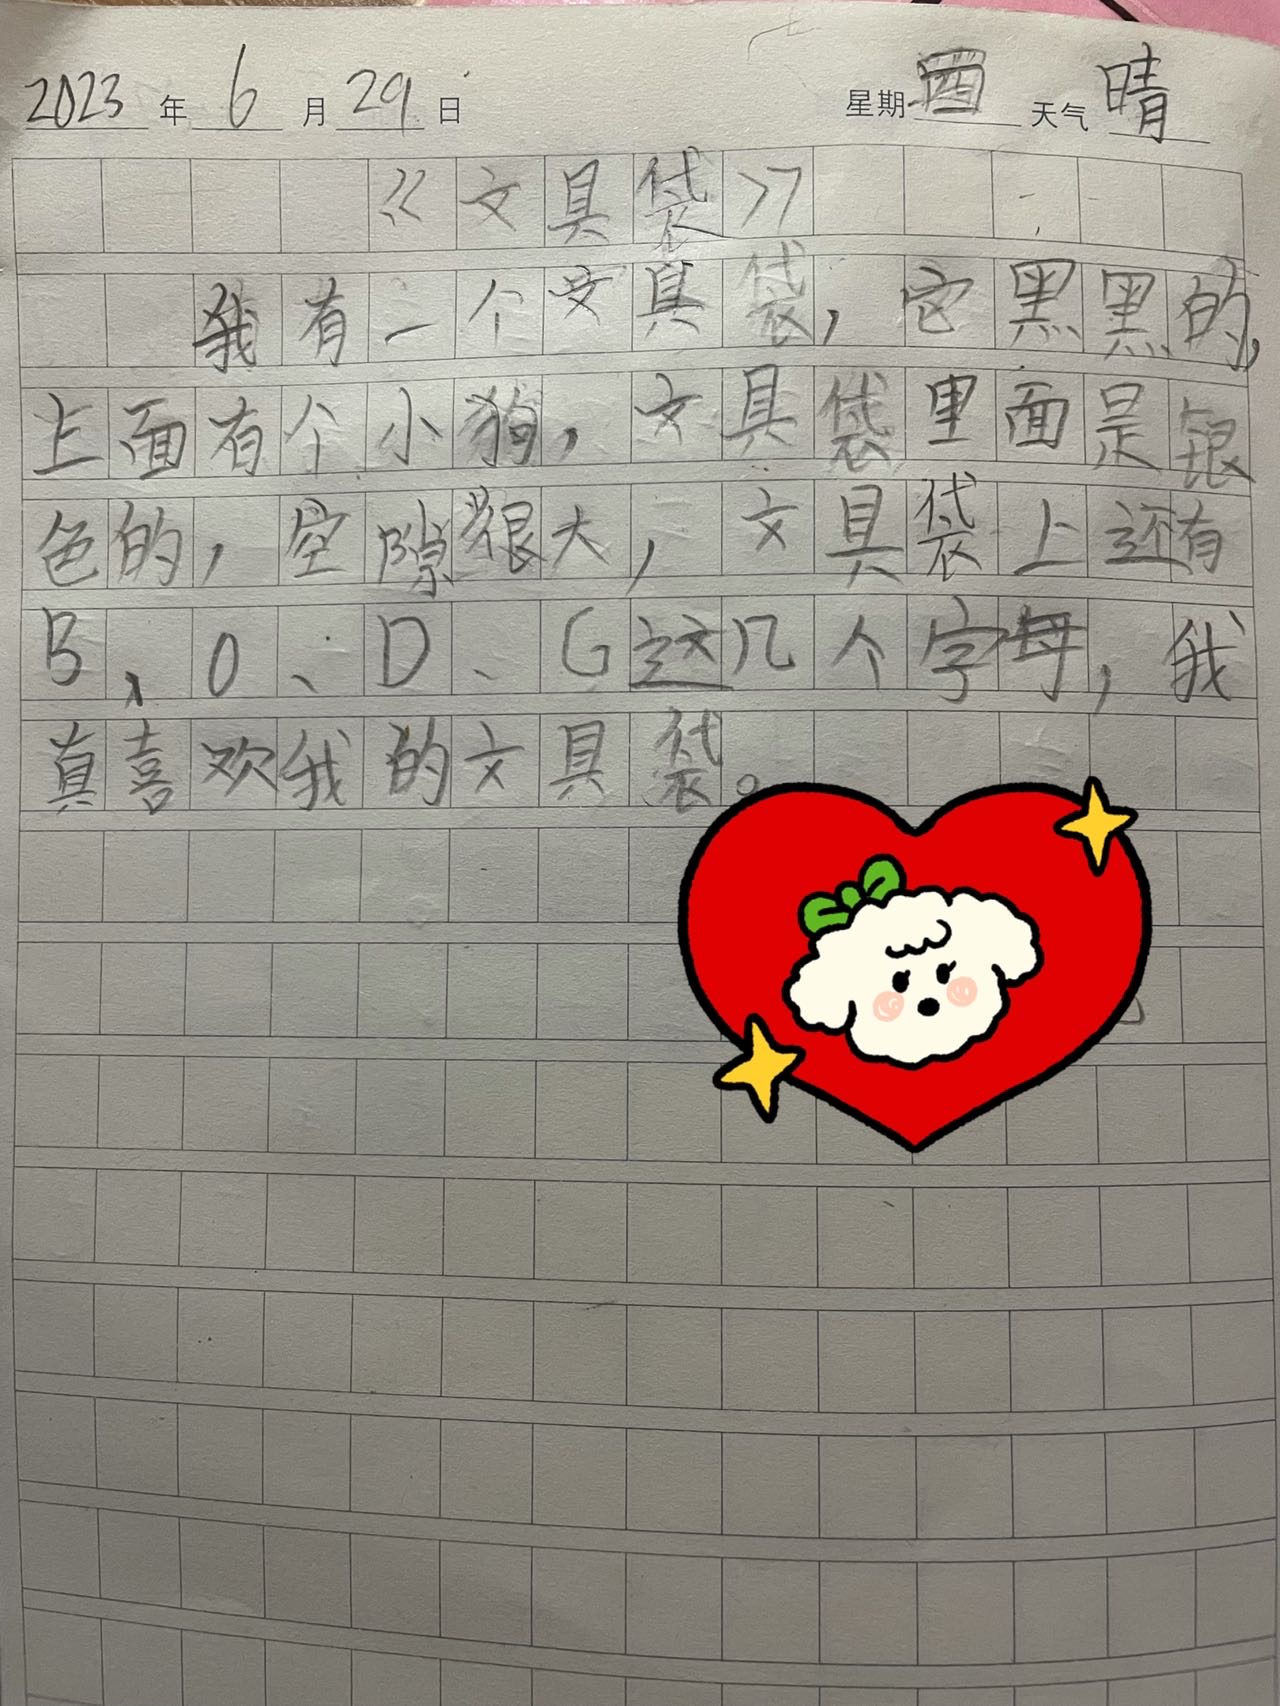 2023年6月29日 星期四 天气 晴
《文具袋》
我有一个文具袋，它黑黑的，
上面有个小狗，文具袋里面是银
色的，空隙很大，文具袋上还有
B、O、D、G这几个字母，我
真喜欢我的文具袋。